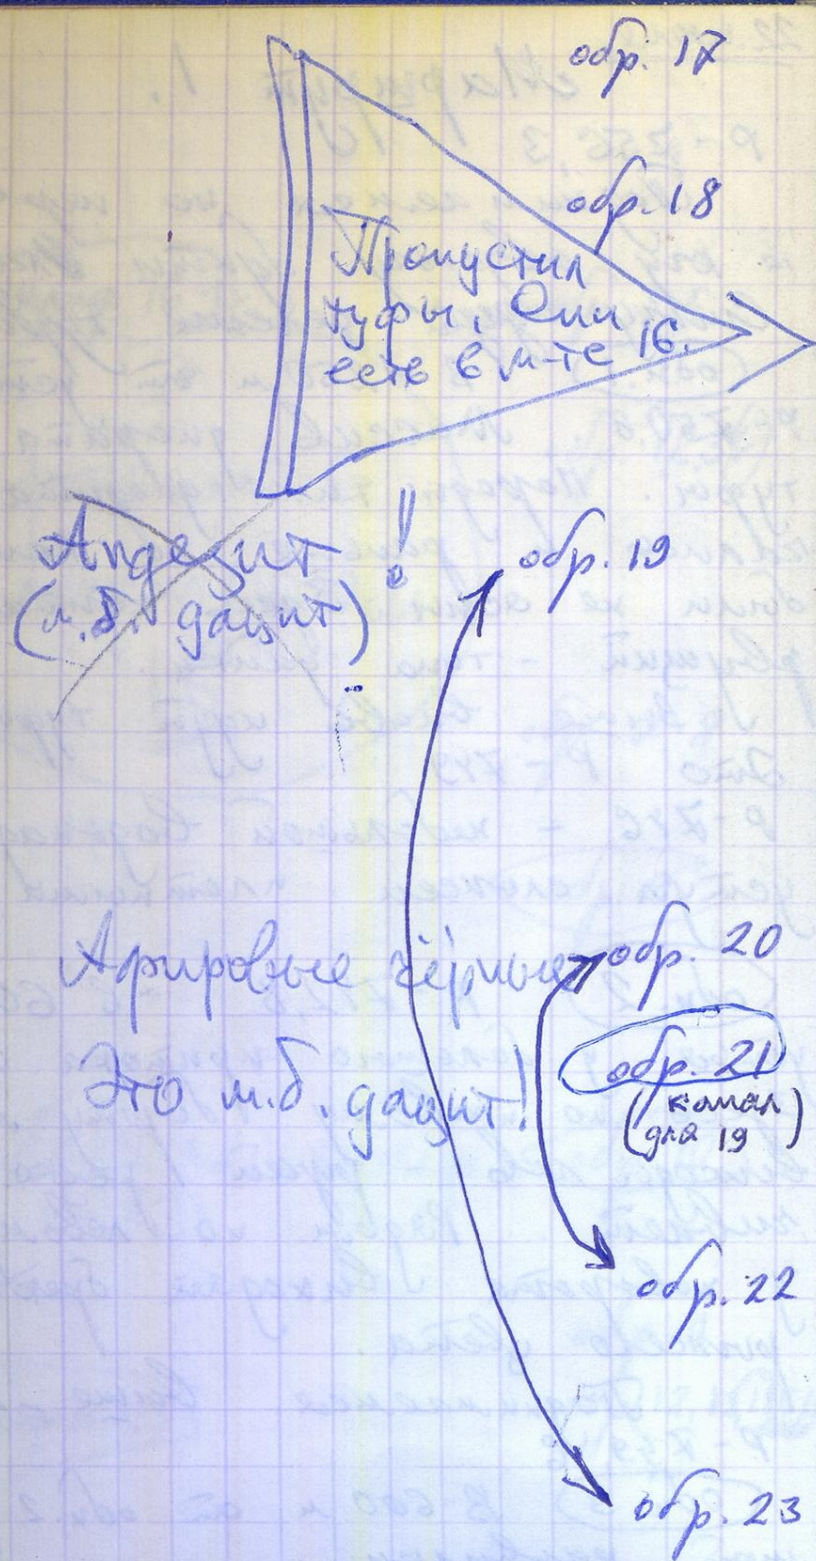 обр. 17
обр. 18
Пропустил
туфы. Они
есть в м-те 16.
Андезит !!
(м.б. дацит)
обр. 19
Афировые чёрные
обр. 20
Это м.б. дацит!
обр. 21
(канал
для 19)
обр. 22
обр. 23